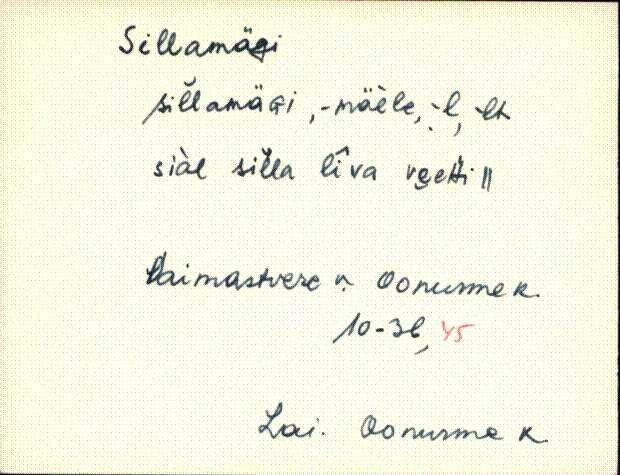 Sillamägi
sillamäGi, -mäèle, -l, -lt
siàl silla lîva veeti ||
Laimastvere v. Oonurme k.
10-36, 45
Lai. Oonurme k.